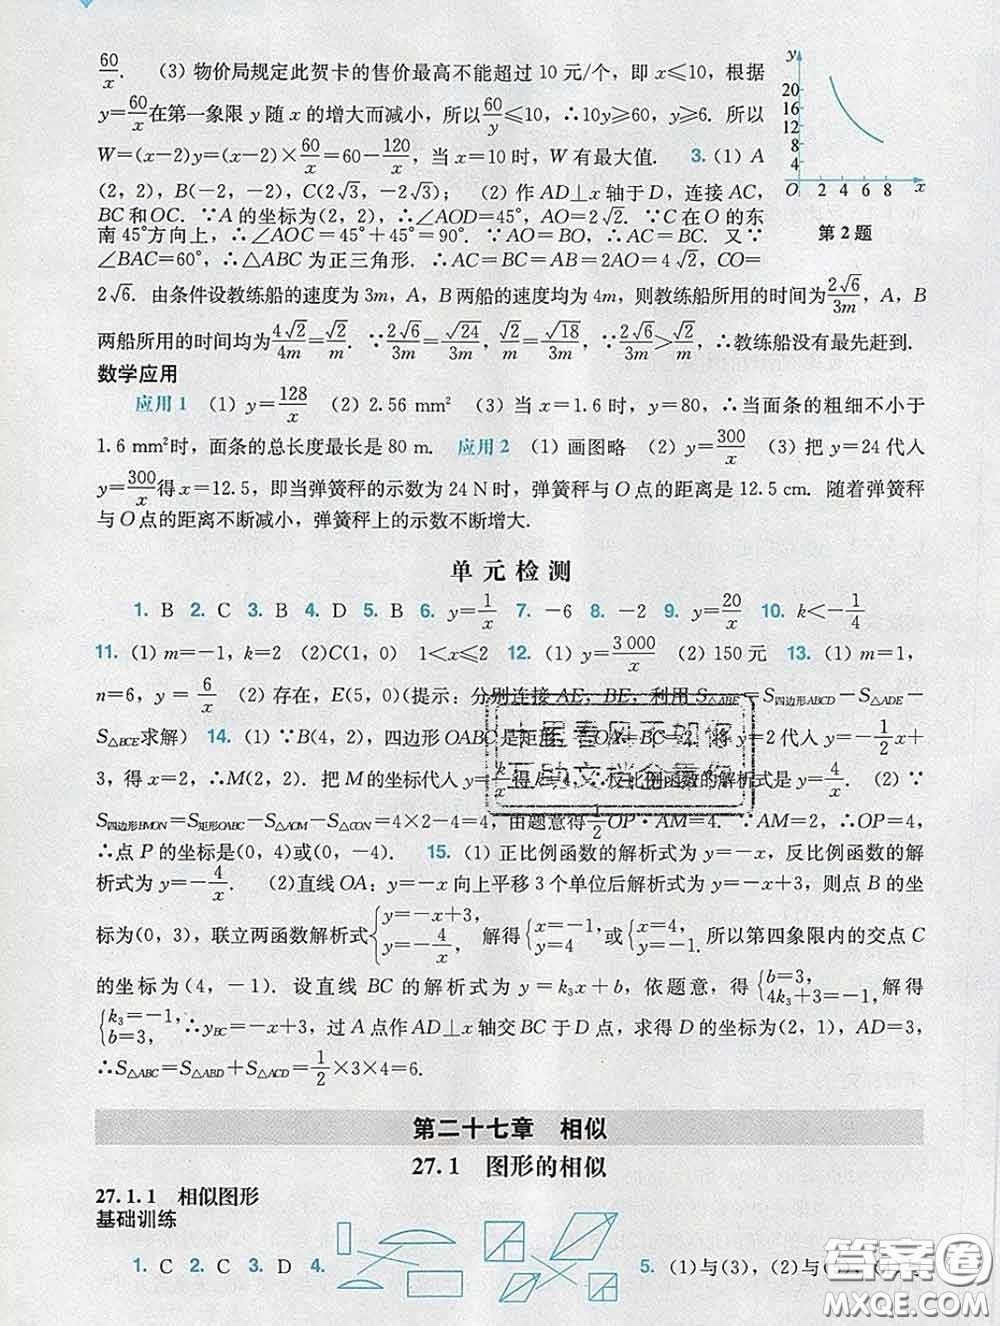 60/x. (3)物价局规定此贺卡的售价最高不能超过10元/个，即x≤10，根据
y=60/x在第一象限y随x的增大而减小，所以60/y≤10，∴10y≥60，y≥6. 所以
W=(x-2)y=(x-2)×60/x=60-120/x，当x=10时，W有最大值. 3. (1) A
(2，2)，B(-2，-2)，C(2√3，-2√3)； (2) 作AD⊥x轴于D，连接AC，
BC和OC. ∵A的坐标为(2，2)，∴∠AOD=45°，AO=2√2. ∵C在O的东
南45°方向上，∴∠AOC=45°+45°=90°. ∵AO=BO，∴AC=BC. 又∵
∠BAC=60°，∴△ABC为正三角形. ∴AC=BC=AB=2AO=4√2，CO=
2√6. 由条件设教练船的速度为3m，A，B两船的速度均为4m，则教练船所用的时间为2√6/3m，A，B
两船所用的时间均为4√2/4m=√2/m. ∵2√6/3m=√24/3m，√2/m=√18/3m，∵2√6/3m>√2/m，∴教练船没有最先赶到.
y
20
16
12
8
4
O 2 4 6 8 x
第2题
数学应用
应用1 (1) y=128/x (2) 2.56 mm² (3) 当x=1.6时，y=80，∴当面条的粗细不小于
1.6 mm²时，面条的总长度最长是80 m. 应用2 (1) 画图略 (2) y=300/x (3) 把y=24代入
y=300/x得x=12.5，即当弹簧秤的示数为24 N时，弹簧秤与O点的距离是12.5 cm. 随着弹簧秤
与O点的距离不断减小，弹簧秤上的示数不断增大.
单元检测
1. B 2. C 3. B 4. D 5. B 6. y=1/x 7. -6 8. -2 9. y=20/x 10. k<-1/4
11. (1) m=-1，k=2 (2)C(1，0) 1<x≤2 12. (1) y=3000/x (2) 150元 13. (1) m=1，
n=6，y=6/x (2) 存在，E(5，0)(提示：分别连接AE，BE，利用S△ABE=S四边形ABCD-S△ADE-
S△BCE求解) 14. (1) ∵B(4，2)，四边形OABC是矩形，∴OA=BC=2. 将y=2代入y=-1/2x+
3，得x=2，∴M(2，2). 把M的坐标代入y=k/x得k=4，∴反比例函数的解析式是y=4/x. (2) ∵
S四边形BMON=S矩形OABC-S△AOM-S△CON=4×2-4=4，由题意得1/2OP·AM=4. ∵AM=2，∴OP=4，
∴点P的坐标是(0，4)或(0，-4). 15. (1) 正比例函数的解析式为y=-x，反比例函数的解
析式为y=-4/x. (2)直线OA：y=-x向上平移3个单位后解析式为y=-x+3，则点B的坐
标为(0，3)，联立两函数解析式{y=-x+3，y=-4/x，解得{x=-1，y=4或{x=4，y=-1. 所以第四象限内的交点C
的坐标为(4，-1). 设直线BC的解析式为y=k₃x+b，依题意，得{b=3，4k₃+3=-1，解得
{k₃=-1，b=3，∴y_BC=-x+3，过A点作AD⊥x轴交BC于D点，求得D的坐标为(2，1)，AD=3，
∴S△ABC=S△ABD+S△ACD=1/2×3×4=6.
第二十七章 相似
27.1 图形的相似
27.1.1 相似图形
基础训练
1. C 2. C 3. D 4. 5. (1)与(3)，(2)与
答案圈
MXQE.COM